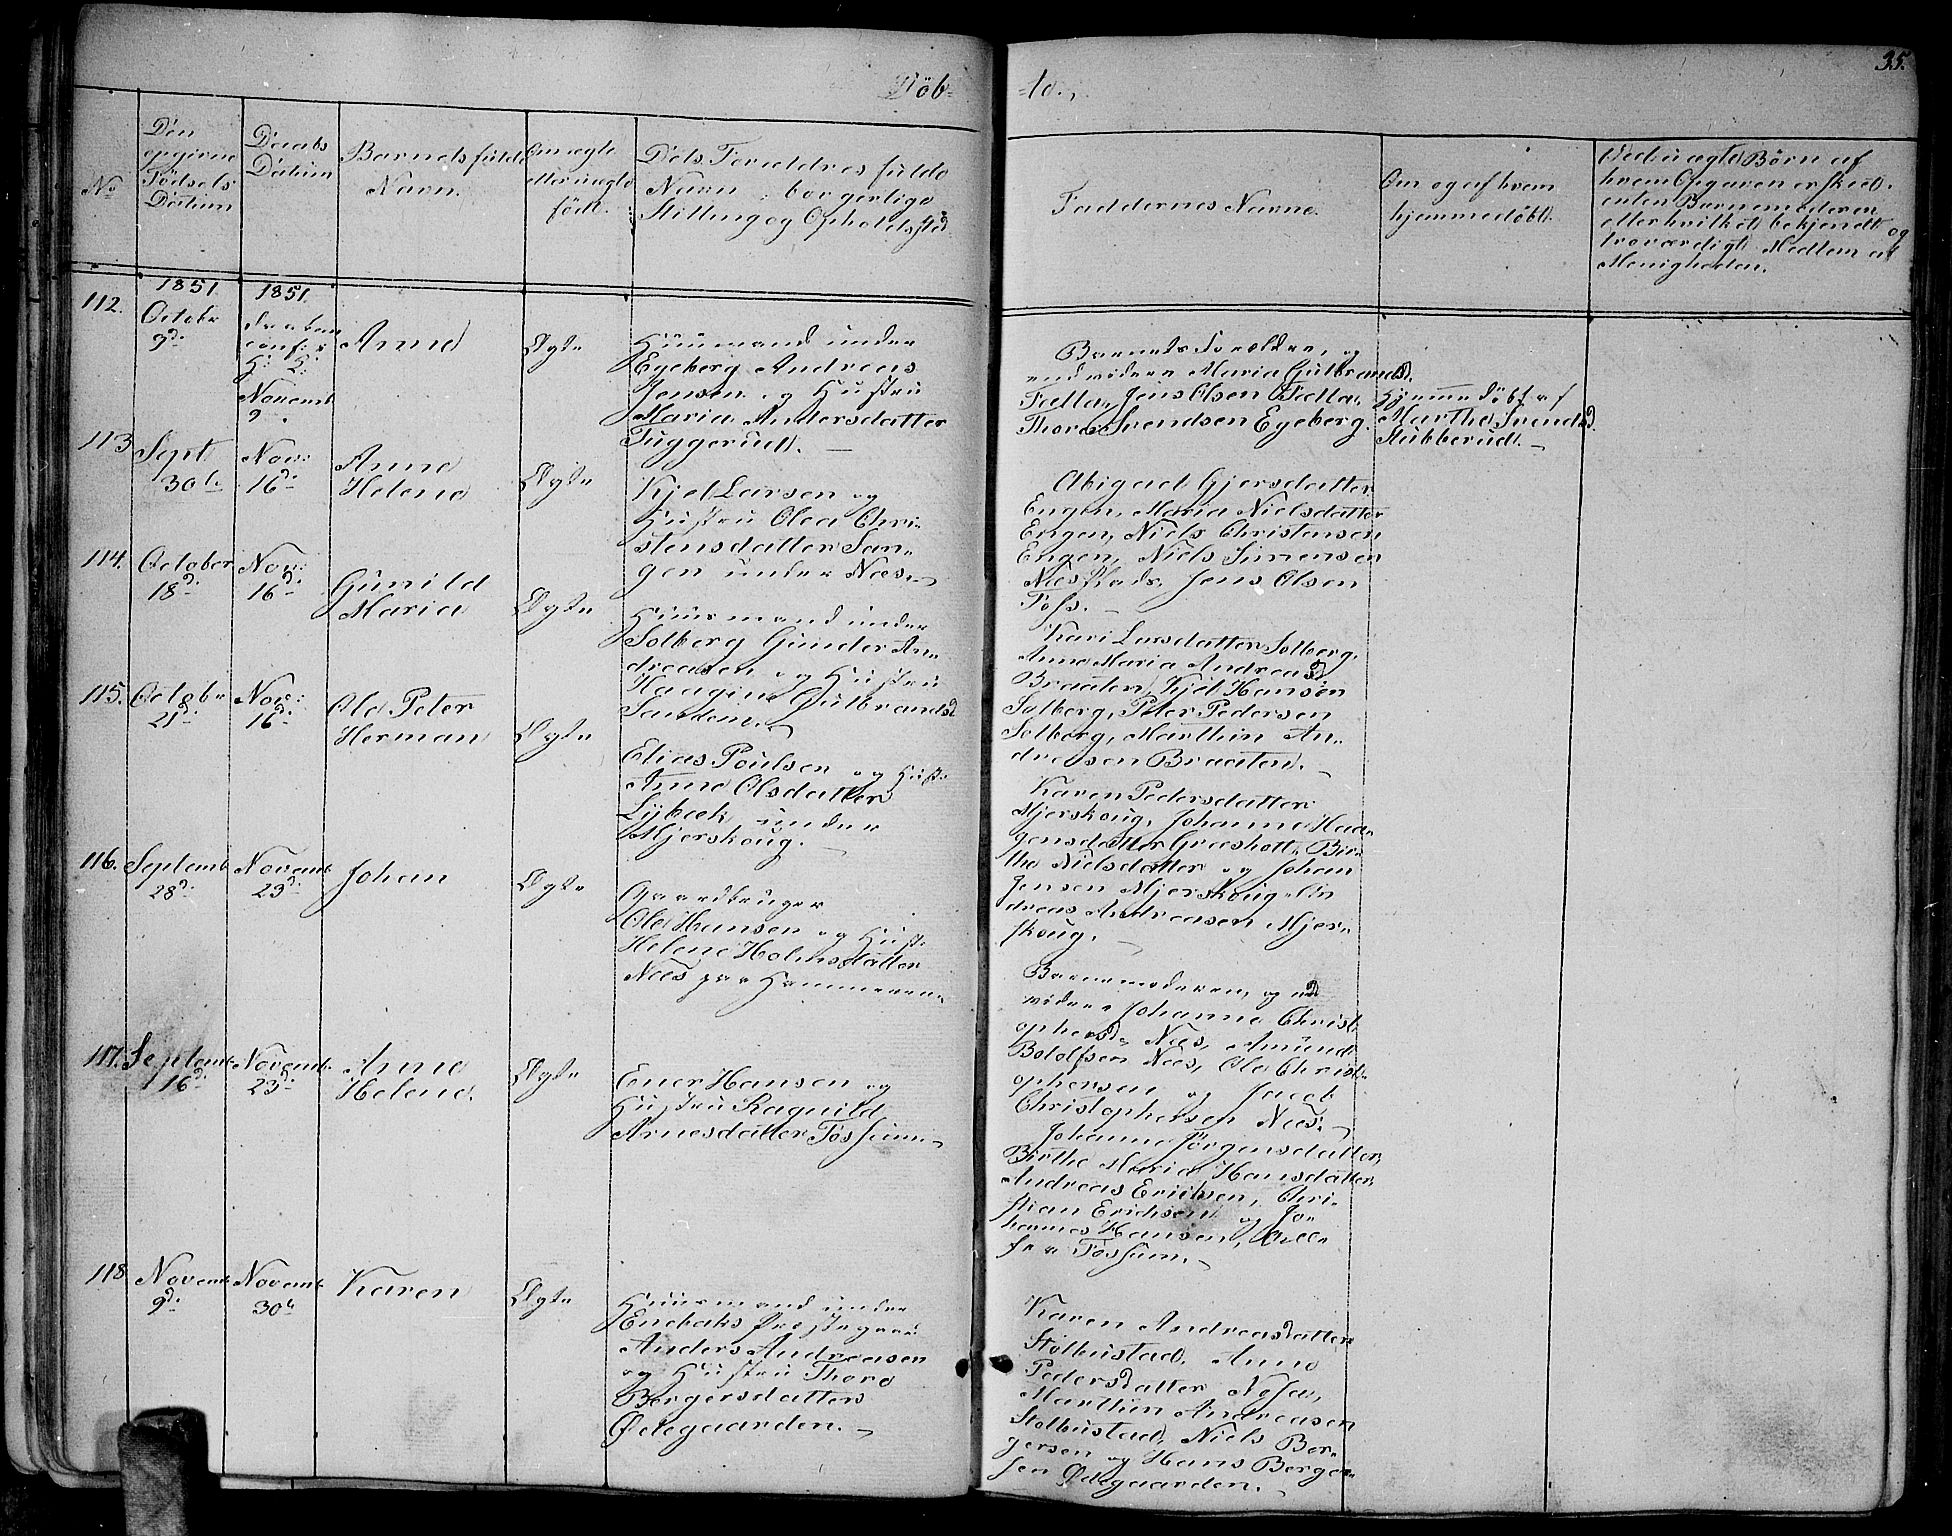 Döb-
-te.
35.
No
Den
opgivne
Födsels
Datum
Daabs
Datum
Barnets fulde
Navn.
Om ægte
eller uægte
födt.
Dets Forældres fulde
Navn, borgerlige
Stilling og Opholdssted
Faddernes Navne.
Om og af hvem
hjemmedöbt.
Ved uægte Börn af
hvem Opgaven er skeet,
enten Barnemoderen
eller hvilket bekjendt og
troværdigt Medlem af
Menigheden.
112.
1851
Octobr
9d.
1851
Daaben
conf: i
H: K:
Novemb
9.
Anne
Ægte
Huusmand under
Egeberg Andreas
Jensen og Hustru
Maria Andersdatter
Tuggerud. —
Barnets Forældre, og
endvidere Maria Gulbrandsd.
Tælla, Jens Olsen Tælla,
Thore Svendsen Egeberg.
Hjemmedöbt af
Marthe Svendsd.
Stubberud. —
113
Sept
30te
Nov:
16d.
Anne
Helene
Ægte
Kjel Larsen og
Hustru Olea Chri-
stensdatter San-
gen under Næs. —
Abigael Gjersdatter
Engen, Maria Nielsdatter
Engen, Niels Christensen
Engen, Niels Simensen
Næs Plads, Jens Olsen
Foss. —
114.
October
18d.
Nov:
16d.
Gunild
Maria
Ægte
Huusmand under
Solberg Gunder An-
dreasen og Hustru
Haagine Gulbrandsd
Sandem. —
Kari Larsdatter Solberg,
Anne Maria Andreasd.
Braaten, Kjel Hansen
Solberg, Peter Pedersen
Solberg, Marthin An-
dreasen Braaten. —
115.
Octobr
21d.
Nov:
16d.
Ole Peter
Herman
Ægte
Elias Poulsen og Hust:
Anne Olsdatter
Lÿbeck under
Mjerskoug. —
Karen Pedersdatter
Mjerskoug, Johanne Haa-
gensdatter Græsholt, Bir-
the Nielsdatter og Johan
Jensen Mjerskoug, An
dreas Andreasen Mjer-
skoug. —
116.
Septemb
28d.
Novemb
23d.
Johan
Ægte
Gaardbruger
Ole Hansen og Hust:
Helene Holmsdatter
Næs paa Hammeren.
Barnemoderen, og end
videre Johanne Christ-
ophersd. Næs, Amund
Bolofsen Næs, Ole Christ-
ophersen og Jacob
Christophersen Næs. —
117.
Septemb
16d.
Novemb.
23d.
Anne
Helene.
Ægte
Ener Hansen og
Hustru Ragnild
Arnesdatter Fossum. —
Johanne Jörgensdatter,
Birthe Maria Hansdatter,
Andreas Erichsen, Chri-
stian Erichsen og Jo-
hannes Hansen, Alle
fra Fossum. —
118
Novemb
9d.
Novemb
30te
Karen
Ægte
Huusmand under
Enebaks Præstegaard
Anders Andreasen
og Hustru Thore
Börgersdatter
Ödegaarden. —
Karen Andreasdatter
Stolbustad, Anne
Pedersdatter Nosa,
Marthin Andreasen
Stolbustad, Niels Bör-
gersen og Hans Börger-
sen Ödegaarden. —